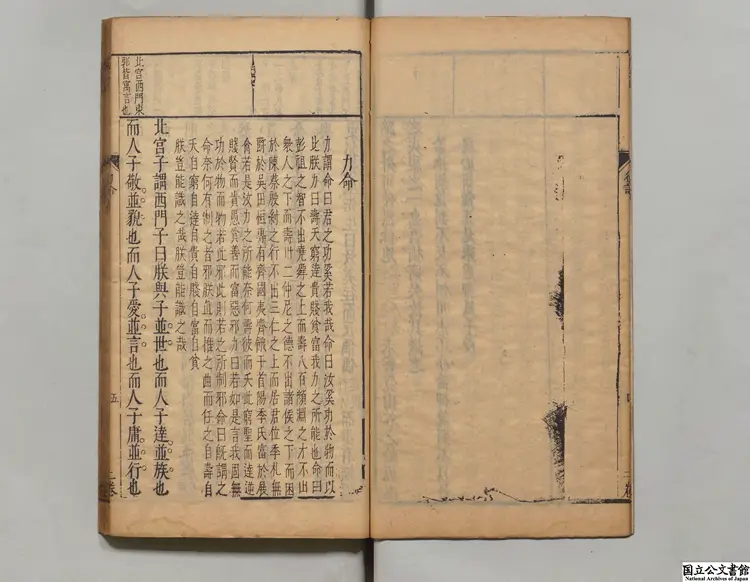 力命
力謂命曰君之功奚若我哉命曰汝奚功於物而以
比朕力曰壽夭窮達貴賤貧富我力之所能也命曰
彭祖之智不出堯舜之上而壽八百顏淵之才不出
衆人之下而壽卅二仲尼之德不出諸侯之下而困
於陳蔡殷紂之行不出三仁之上而居君位季札無
爵於吳田恒專有齊國夷齊餓于首陽季氏富於展
禽若是汝力之所能奈何壽彼而夭此窮聖而達逆
賤賢而貴愚貧善而富惡邪力曰若如是言我固無
功於物而物若此邪此則若之所制邪命曰旣謂之
命奈何有制之者邪朕直而推之曲而任之自壽自
夭自窮自達自貴自賤自富自貧
朕豈能識之哉朕豈能識之哉
北宮西門東
郭皆寓言也
北宮子謂西門子曰朕與子並世也而人子達並族也
而人子敬並貌也而人子愛並言也而人子庸並行也
力命
五
二卷
国立公文書館
National Archives of Japan